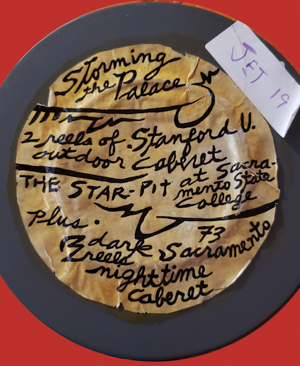 Storming
the Palace
2 reels of Stanford U.
outdoor Caberet
THE STAR-PIT at Sacra-
mento State
College
Plus.
2 dark 73 Sacramento
reels
nighttime
Caberet
JET 19